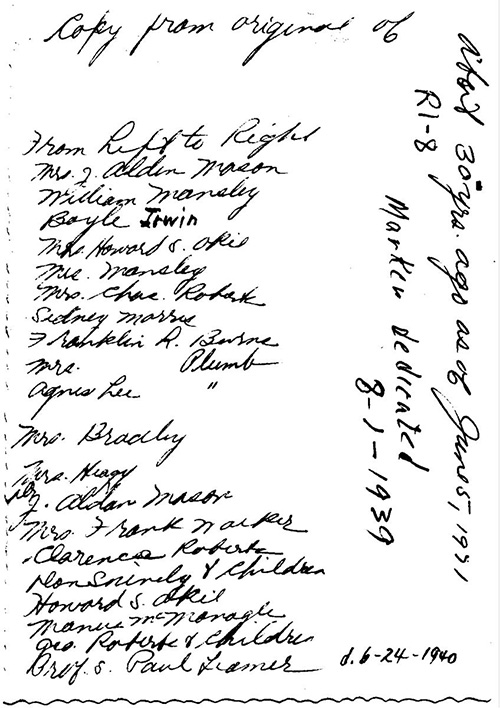 Copy from original of
From Left to Right
Mrs. J. Alden Mason
William Mansley
Boyle Irwin
Mrs. Howard S. Okie
Mrs. Mansley
Mrs. Chas. Roberts
Sidney Morris
Franklin R. Burns
Mrs. Plumb
Agnes Lee "
Mrs. Bradley
Mrs. Heagy
J. Aldan Mason
Mrs. Frank Walker
Clarence Roberts
Don Snively & Children
Howard S. Okie
Manus McMonagle
Geo. Roberts & Children
Prof. S. Paul
d. 6-24-1940
about 30 yrs. ago as of June 5, 1971
R1-8
Marker dedicated
8-1-1939